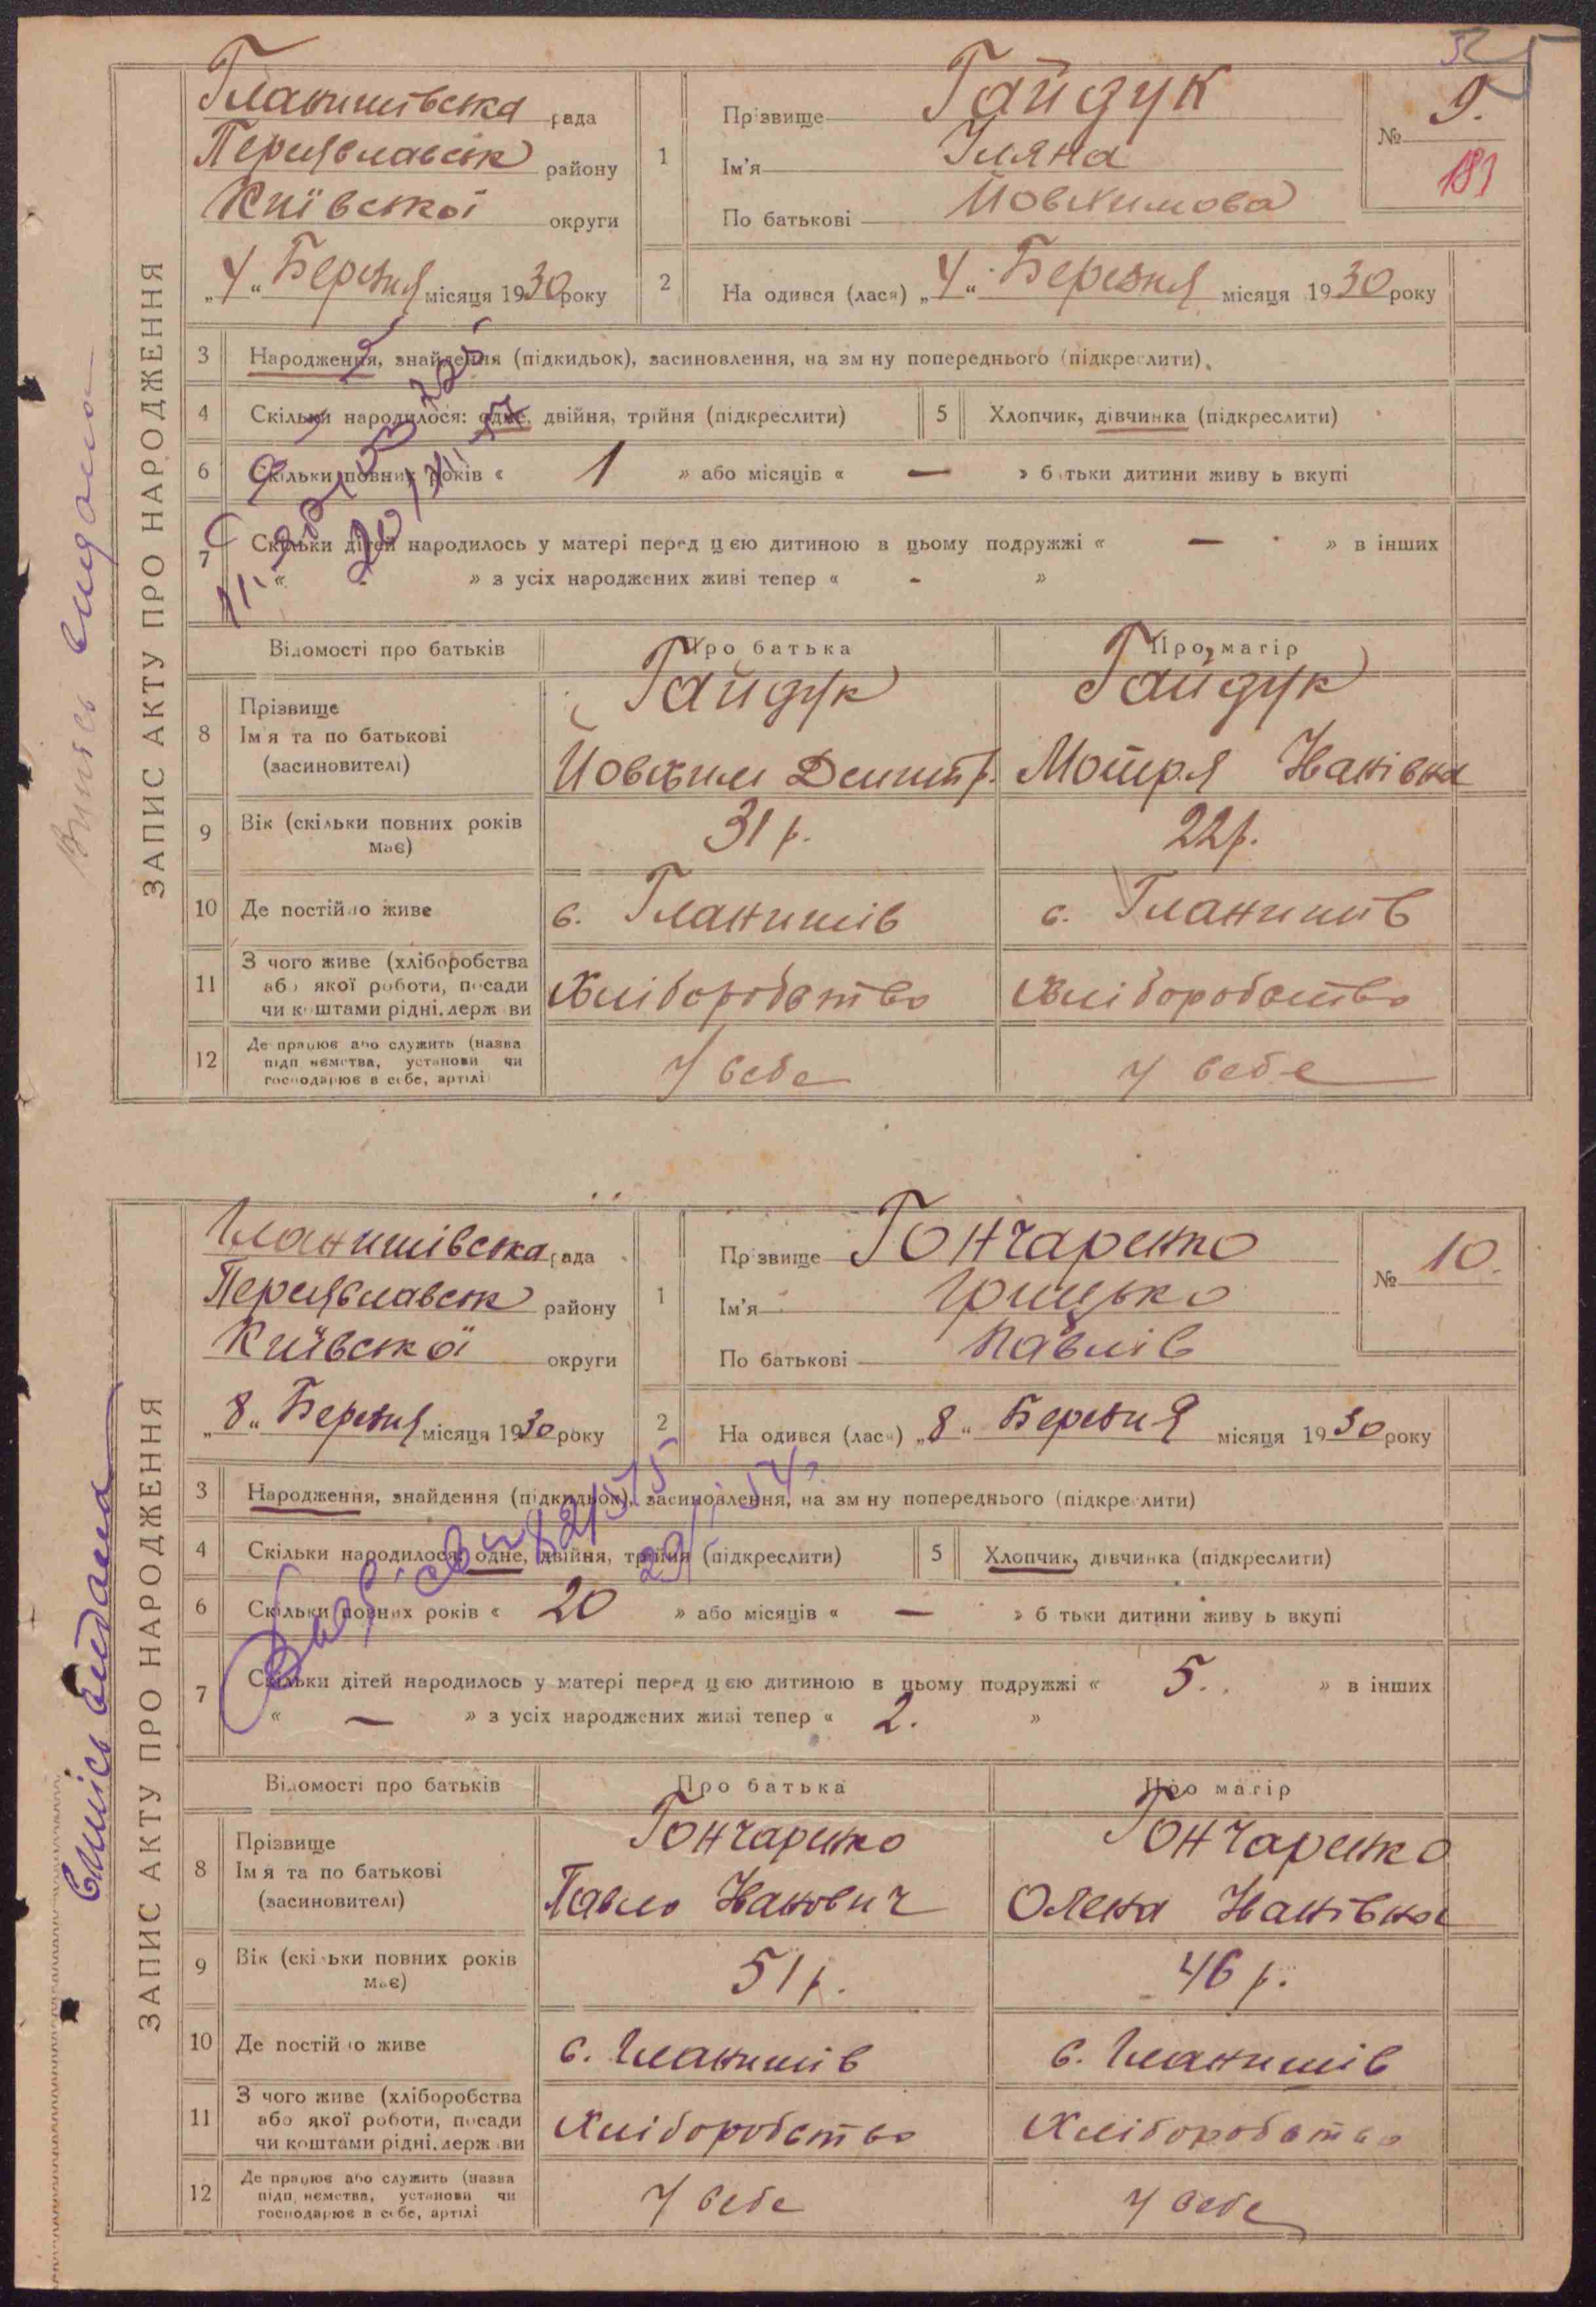 5
ЗАПИС АКТУ ПРО НАРОДЖЕННЯ
Випись видана
Гланишівська рада
Переяславськ району
Київської округи
„4“ Березня місяця 1930 року
1
Прізвище Гайдук
Ім'я Уляна
По батькові Йовхимова
№ 9.
183
2 На одився (лася) „4“ Березня місяця 1930 року
3 Народження, знайдення (підкидьок), засиновлення, на зм ну попереднього (підкреслити).
4 Скільки народилося: одне, двійня, трійня (підкреслити)
5 Хлопчик, дівчинка (підкреслити)
6 Скільки повних років « 1 » або місяців « — » б тьки дитини живу ь вкупі
7 Скільки дітей народилось у матері перед цією дитиною в цьому подружжі « — » в інших
« - » з усіх народжених живі тепер « - »
Відомості про батьків Про батька Про матір
8 Прізвище
Ім я та по батькові
(засиновителі)
Гайдук
Йовхим Дмитр.
Гайдук
Мотря Іванівна
9 Вік (скільки повних років
має)
31 р.
22 р.
10 Де постійно живе
с. Гланишів
с. Гланишів
11 З чого живе (хліборобства
або якої роботи, посади
чи коштами рідні, держ ви
Хліборобство
Хліборобство
12 Де працює або служить (назва
підп ємства, установи чи
господарює в себе, артілі
У себе
У себе
ЗАПИС АКТУ ПРО НАРОДЖЕННЯ
Випись видана
Гланишівська рада
Переяславськ району
Київської округи
„8“ Березня місяця 1930 року
1
Прізвище Гончаренко
Ім'я Грицько
По батькові Павлів
№ 10.
2 На одився (лася) „8“ Березня місяця 1930 року
3 Народження, знайдення (підкидьок), засиновлення, на зм ну попереднього (підкре лити)
4 Скільки народилося: одне, двійня, трійня (підкреслити)
5 Хлопчик, дівчинка (підкреслити)
6 Скільки повних років « 20 » або місяців « — » б тьки дитини живу ь вкупі
7 Скільки дітей народилось у матері перед цією дитиною в цьому подружжі « 5. » в інших
« — » з усіх народжених живі тепер « 2. »
Відомості про батьків Про батька Про матір
8 Прізвище
Ім я та по батькові
(засиновителі)
Гончаренко
Павло Іванович
Гончаренко
Олена Іванівна
9 Вік (скільки повних років
має)
51 р.
46 р.
10 Де постійно живе
с. Гланишів
с. Гланишів
11 З чого живе (хліборобства
або якої роботи, посади
чи коштами рідні, держ ви
Хліборобство
Хліборобство
12 Де працює або служить (назва
підп ємства, установи чи
господарює в себе, артілі
У себе
У себе